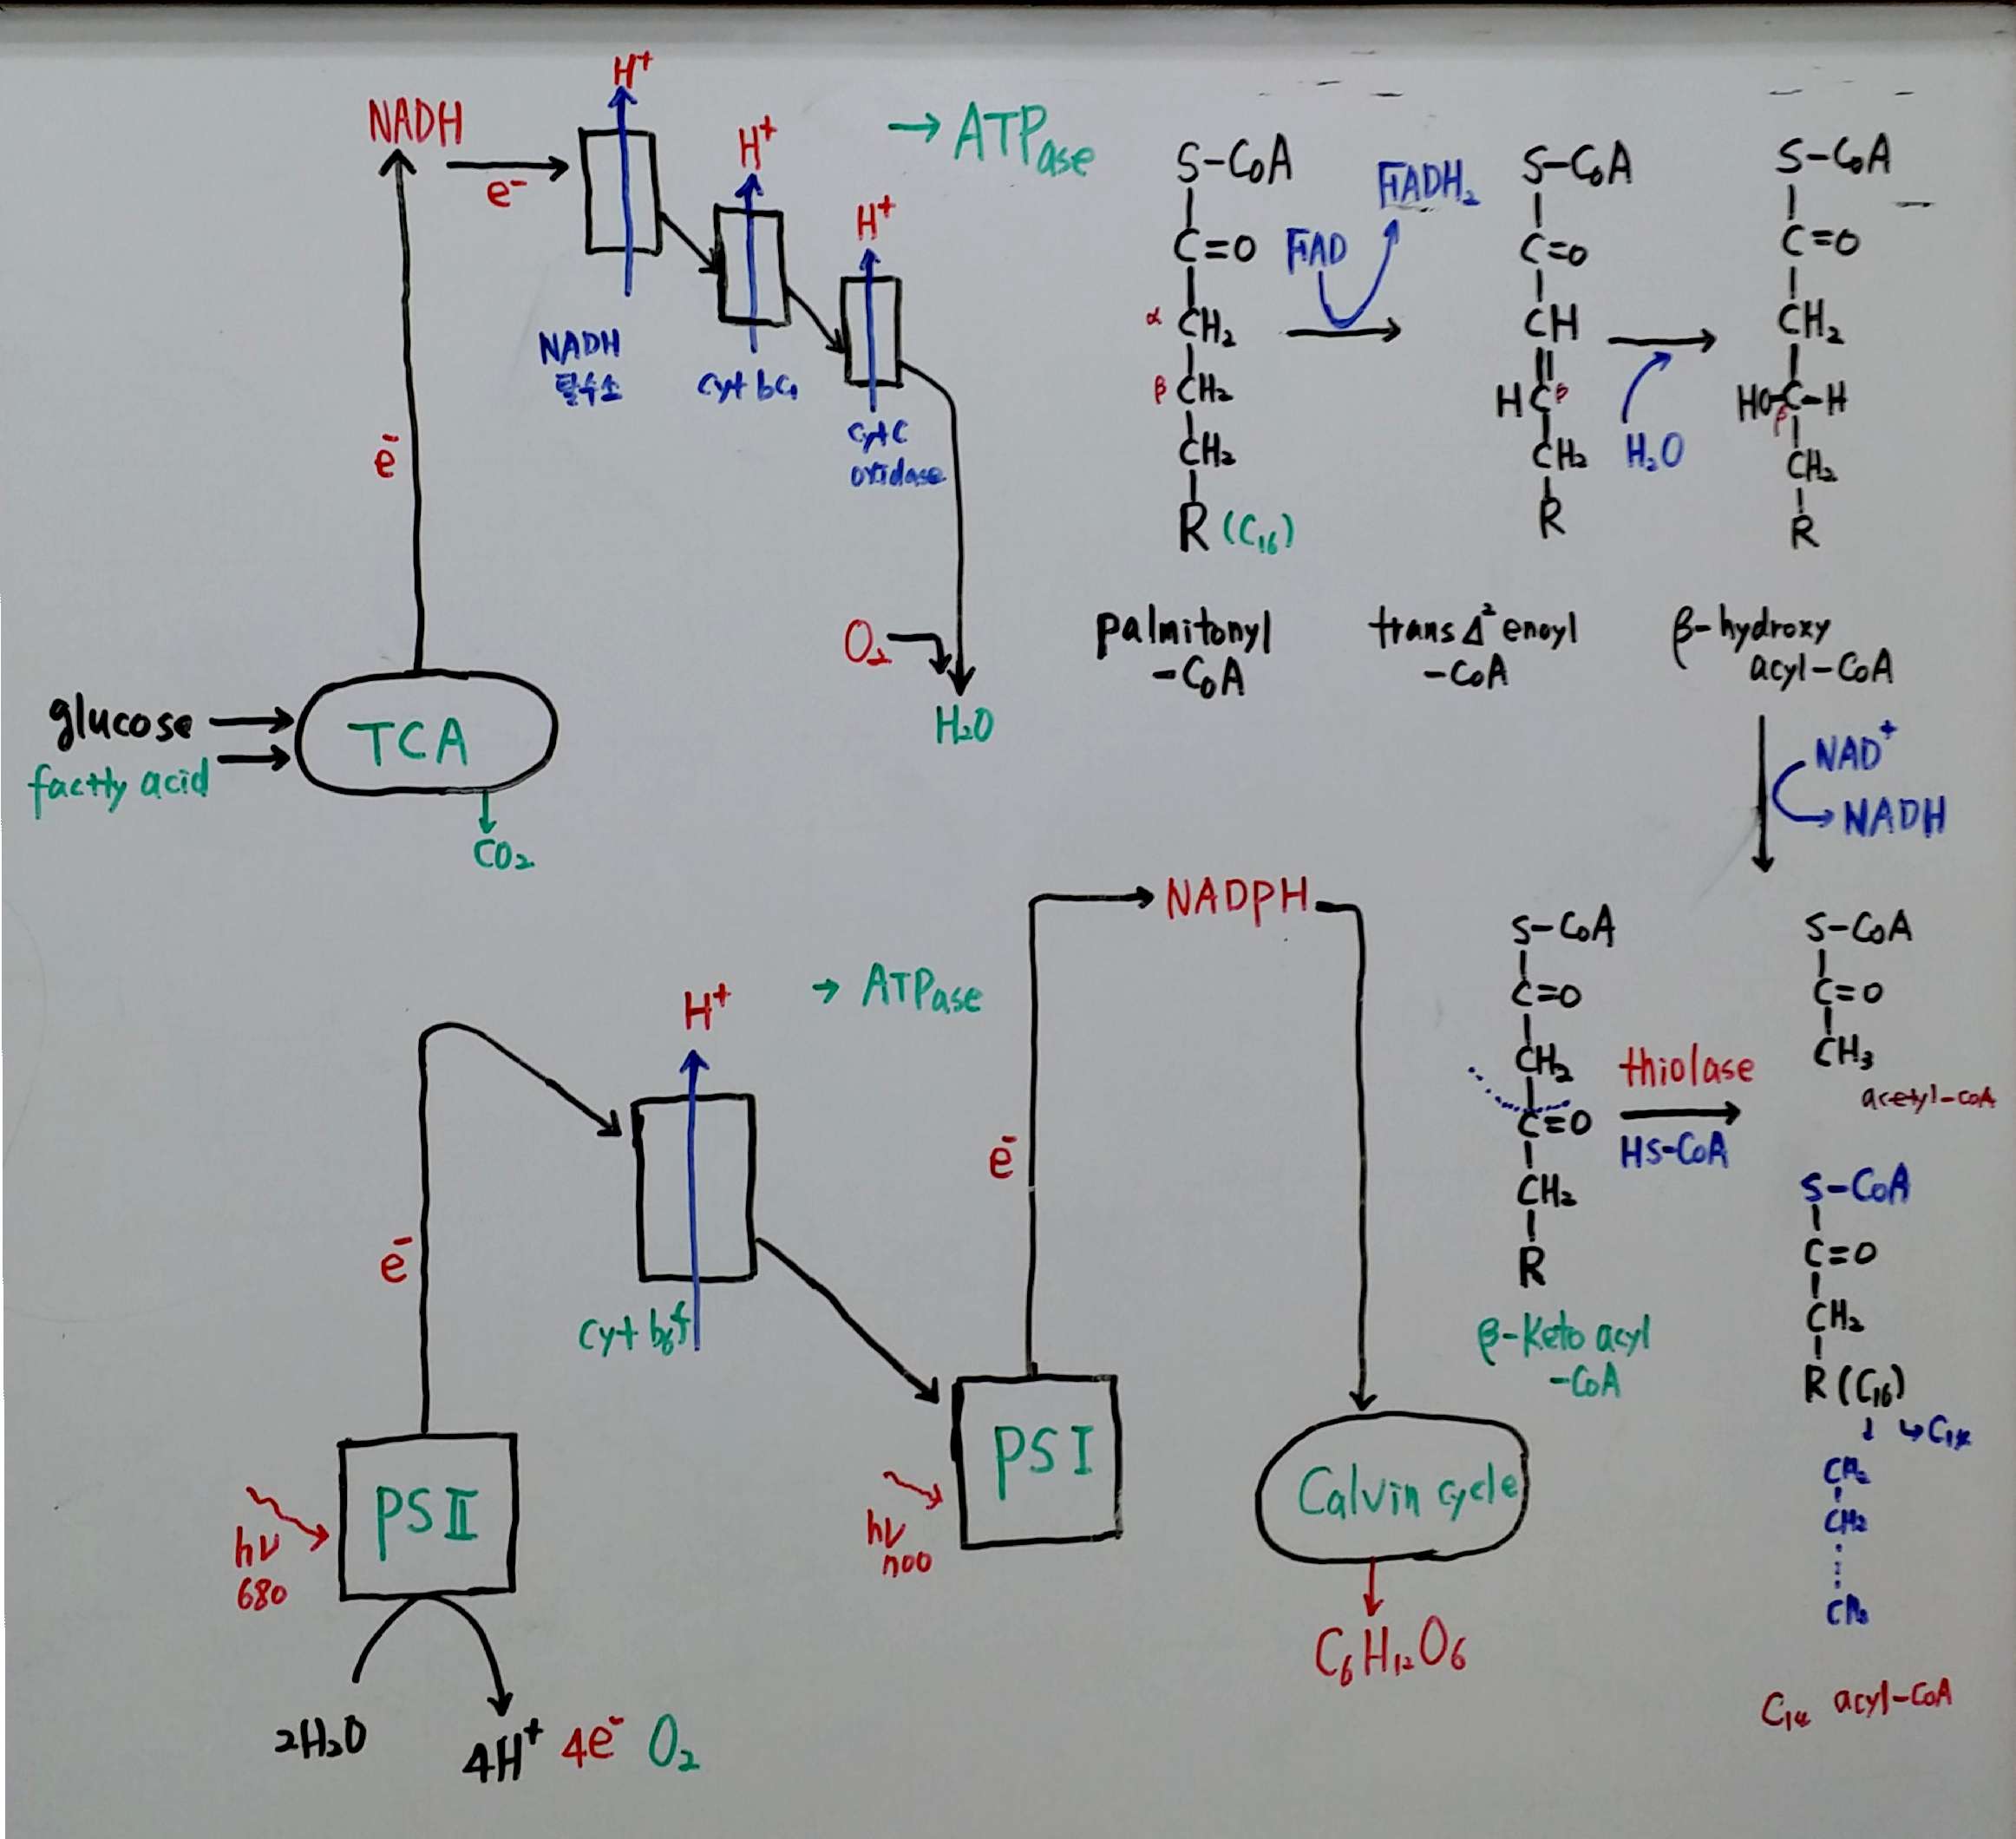 NADH
e⁻
H⁺
H⁺
H⁺
→ ATPase
NADH
탈수소
cyt bc₁
cyt C
oxidase
e⁻
O₂
H₂O
glucose
factty acid
TCA
CO₂
S-CoA
C=O
α CH₂
β CH₂
CH₂
R (C₁₆)
palmitonyl
-CoA
FAD
FADH₂
S-CoA
C=O
CH
H C β
CH₂
R
trans Δ² enoyl
-CoA
H₂O
S-CoA
C=O
CH₂
HO-C-H
β
CH₂
R
β-hydroxy
acyl-CoA
NAD⁺
NADH
S-CoA
C=O
CH₂
C=O
CH₂
R
β-Keto acyl
-CoA
thiolase
HS-CoA
S-CoA
C=O
CH₃
acetyl-CoA
S-CoA
C=O
CH₂
R (C₁₆)
CH₂
CH₂
C₁₄ acyl-CoA
NADPH
→ ATPase
H⁺
e⁻
e⁻
Cyt b₆f
PS II
hν
680
PS I
hν
700
Calvin cycle
C₆H₁₂O₆
2H₂O
4H⁺ 4e⁻ O₂